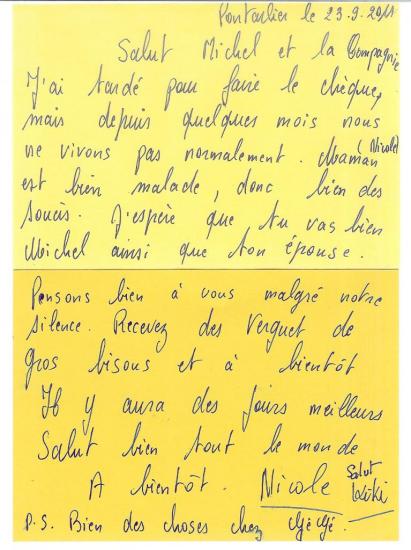 Pontarlier le 23.9.2011
Salut Michel et la Compagnie
J'ai tardé pour faire le chèque,
mais depuis quelques mois nous
ne vivons pas normalement. Maman (Nicole)
est bien malade, donc bien des
soucis. J'espère que tu vas bien
Michel ainsi que ton épouse.
Pensons bien à vous malgré notre
silence. Recevez des Verguet de
gros bisous et à bientôt
Il y aura des jours meilleurs
Salut bien tout le monde
A bientôt. Nicole Salut
P.S. Bien des choses chez Gégé.